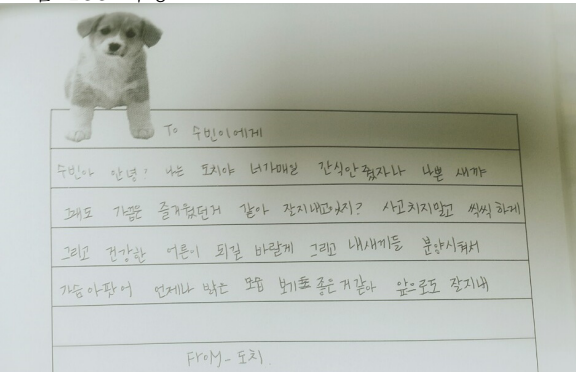 To 수빈이에게
수빈아 안녕? 나는 도치야 너가매일 간식안줬자나 나쁜 새꺄
그래도 가끔은 즐거웠던거 같아 잘지내고있지? 사고치지말고 씩씩하게
그리고 건강한 어른이 되길 바랄게 그리고 내새끼들 분양시켜서
가슴아팠어 언제나 밝은 모습 보기 좋은거같아 앞으로도 잘지내
FroM- 도치.